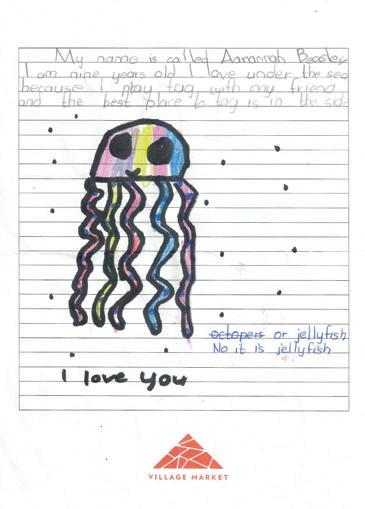 My name is called Aarannah Beasley
I am nine years old I love under the sea
because I play tag with my friend
and the best place to tag is in the side
octopers or jellyfish
No it is jellyfish
I love you
VILLAGE MARKET